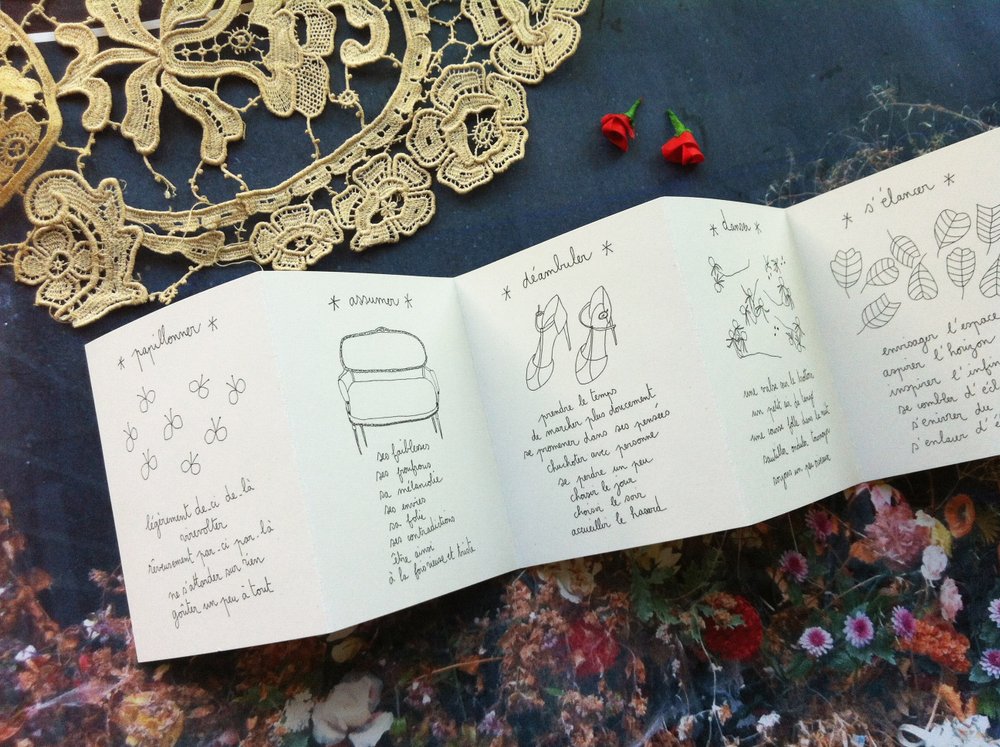 * papillonner *
légèrement de-ci de-là
virevolter
rêveusement par-ci par-là
ne s'attarder sur rien
goûter un peu à tout
* assumer *
ses faiblesses
ses froufrous
sa mélancolie
ses envies
sa folie
ses contradictions
être ainsi
à la fois rieuse et triste
* déambuler *
prendre le temps
de marcher plus doucement
se promener dans ses pensées
chuchoter avec personne
se perdre un peu
choisir le jour
choisir le soir
accueillir le hasard
* danser *
une valse sur le trottoir
un petit air de
une course folle dans la nuit
sautiller onduler
soyons un peu
* s'élancer *
envisager l'espace
aspirer l'horizon
inspirer l'infin
se combler d'écl
s'enivrer du
s'enlacer d'é